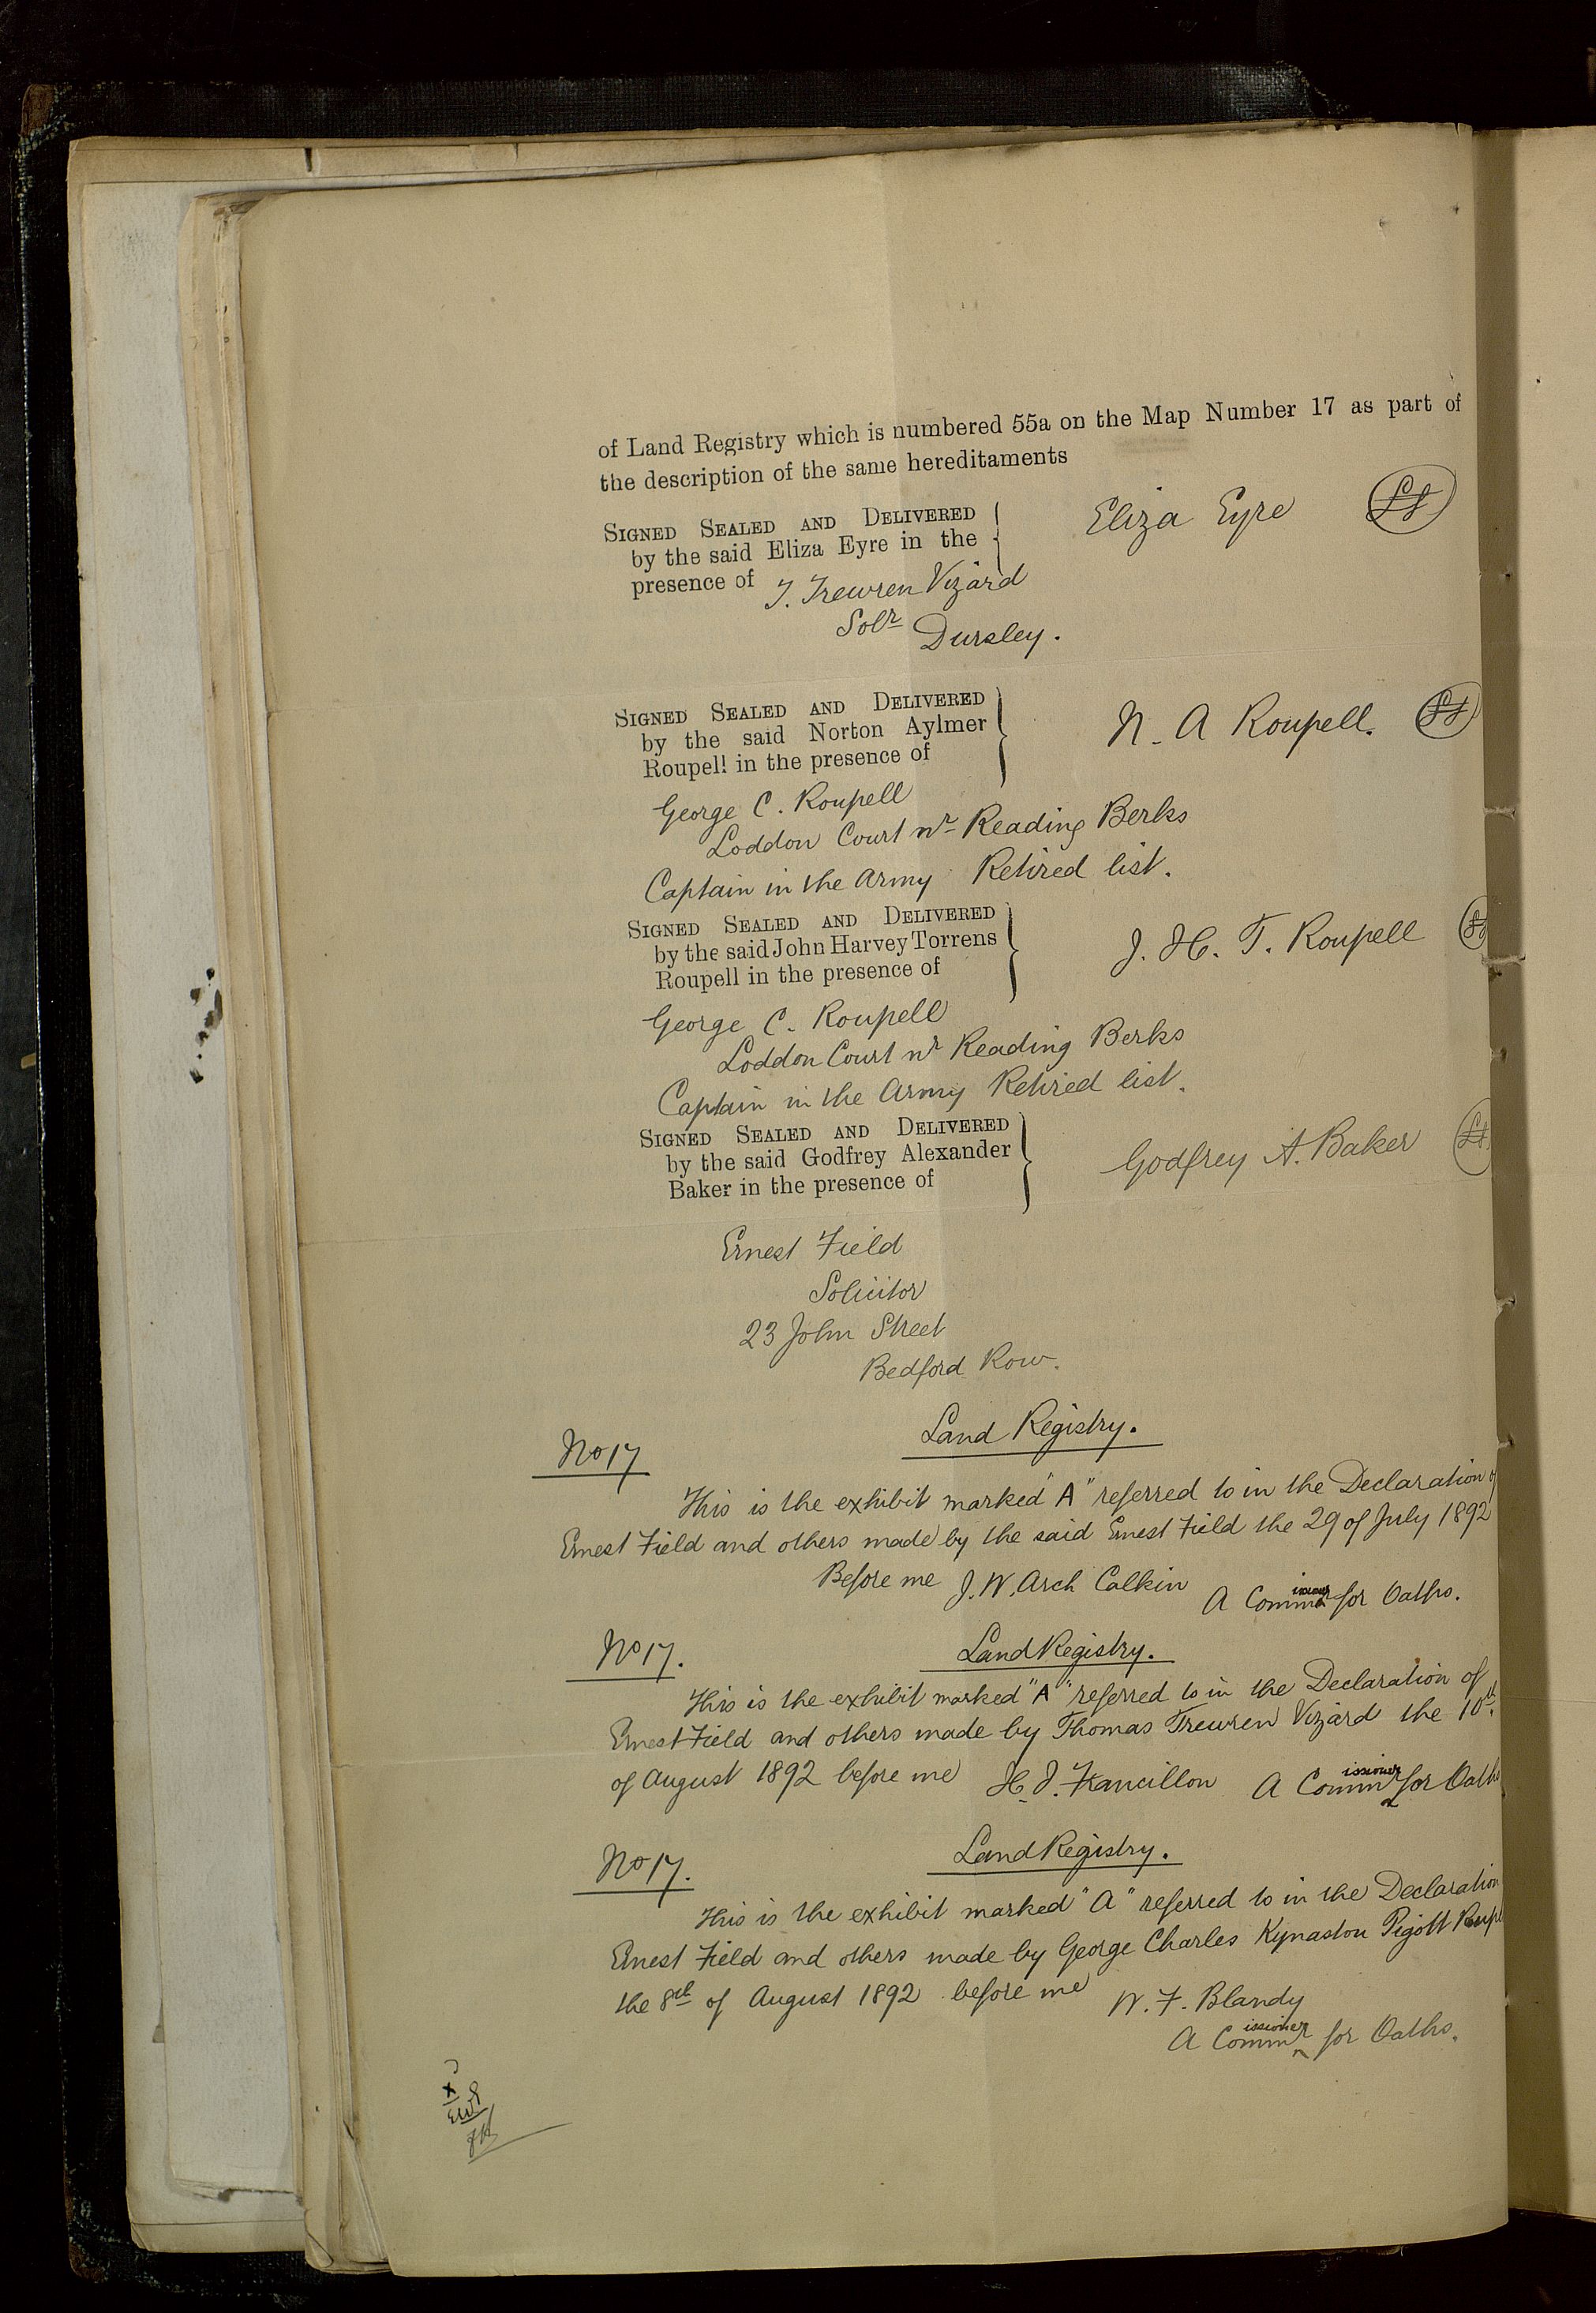 of Land Registry which is numbered 55a on the Map Number 17 as part of
the description of the same hereditaments
SIGNED SEALED AND DELIVERED
by the said Eliza Eyre in the
presence of
Eliza Eyre LS
T. Trewren Vizard
Solr
Dursley.
SIGNED SEALED AND DELIVERED
by the said Norton Aylmer
Roupell in the presence of
N. A Roupell. LS
George C. Roupell
Loddon Court nr Reading Berks
Captain in the Army Retired list.
SIGNED SEALED AND DELIVERED
by the said John Harvey Torrens
Roupell in the presence of
J. H. T. Roupell
George C. Roupell
Loddon Court nr Reading Berks
Captain in the Army Retired list.
SIGNED SEALED AND DELIVERED
by the said Godfrey Alexander
Baker in the presence of
Godfrey A. Baker LS
Ernest Field
Solicitor
23 John Street
Bedford Row.
Land Registry.
No 17
This is the exhibit marked "A" referred to in the Declaration of
Ernest Field and others made by the said Ernest Field the 29 of July 1892
Before me J. W. Arch Calkin A Commissioner for Oaths.
No 17. Land Registry.
This is the exhibit marked "A" referred to in the Declaration of
Ernest Field and others made by Thomas Trewren Vizard the 10th
of August 1892 before me H. J. Francillon A Commissioner for Oaths
No 17. Land Registry.
This is the exhibit marked "A" referred to in the Declaration
Ernest Field and others made by George Charles Kynaston Pigott Roupe
the 8th of August 1892 before me W. F. Blandy
A Commissioner for Oaths.